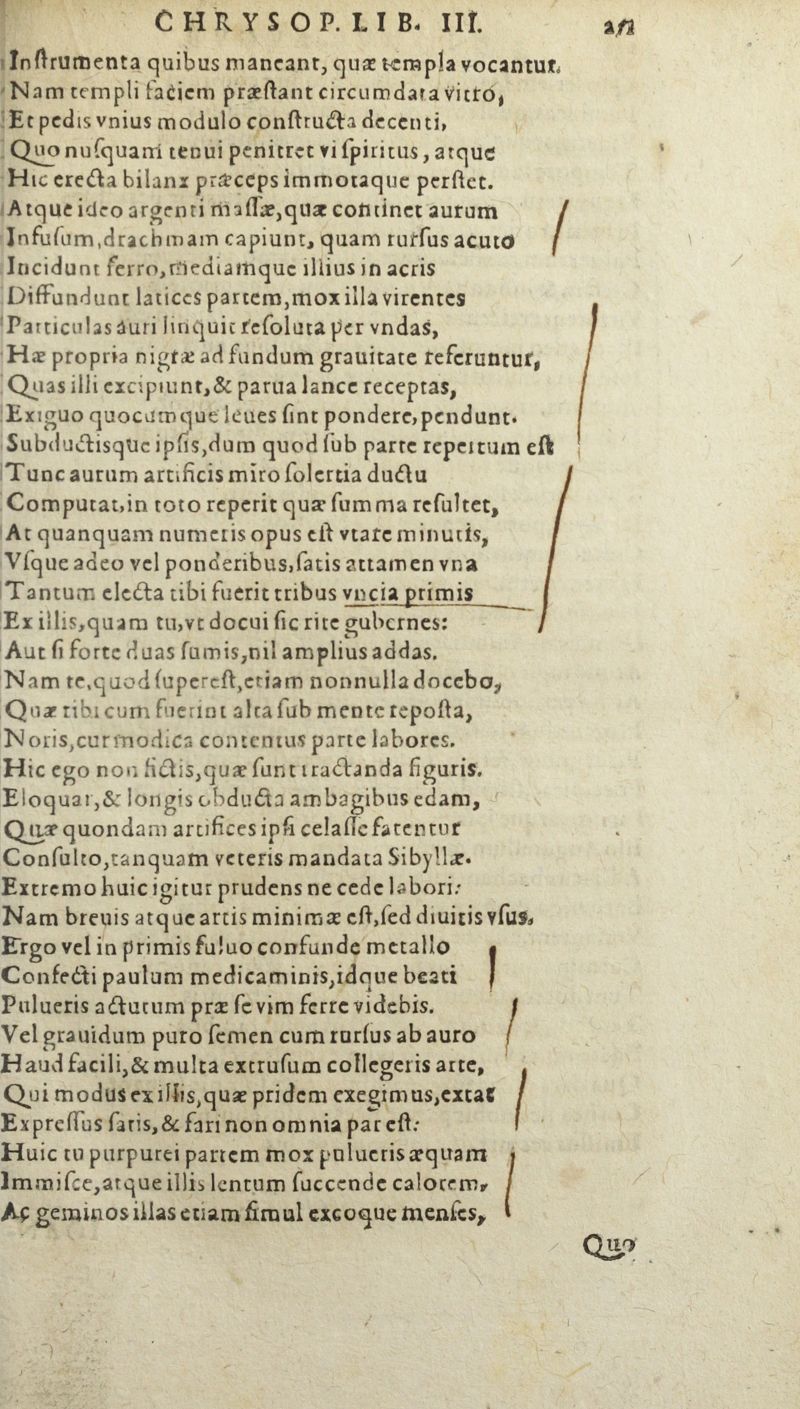 CHRYSOP. LIB. III.
Inſtrumenta quibus maneant, quæ templa vocantur.
Nam templi faciem præſtant circumdata vitro,
Et pedis vnius modulo conſtructa decenti,
Quo nuſquam tenui penitret vi ſpiritus, atque
Hic erecta bilanx præceps immotaque perſtet.
Atque ideo argenti maſſæ, quæ continet aurum
Infuſum, drachmam capiunt, quam rurſus acuto
Incidunt ferro, mediamque illius in acris
Diffundunt latices partem, mox illa virentes
Particulas auri linquit reſoluta per vndas,
Hæ propria nigræ ad fundum grauitate referuntur,
Quas illi excipiunt, & parua lance receptas,
Exiguo quocumque leues ſint pondere, pendunt.
Subductisque ipſis, dum quod ſub parte repertum eſt
Tunc aurum artificis miro ſolertia ductu
Computat, in toto reperit quæ ſumma reſultet,
At quanquam numeris opus eſt vtare minutis,
Vſque adeo vel ponderibus, ſatis attamen vna
Tantum electa tibi fuerit tribus vncia primis
Ex illis, quam tu, vt docui ſic rite gubernes:
Aut ſi forte duas ſumis, nil amplius addas.
Nam te, quod ſupereſt, etiam nonnulla docebo,
Quæ tibi cum fuerint alta ſub mente repoſta,
Noris, cur modica contentus parte labores.
Hic ego non fictis, quæ ſunt tractanda figuris.
Eloquar, & longis obducta ambagibus edam,
Quæ quondam artifices ipſi celaſſe fatentur
Conſulto, tanquam veteris mandata Sibyllæ.
Extremo huic igitur prudens ne cede labori:
Nam breuis atque artis minimæ eſt, ſed diuitis vſus,
Ergo vel in primis fuluo confunde metallo
Confecti paulum medicaminis, idque beati
Pulueris actutum præ ſe vim ferre videbis.
Vel grauidum puro ſemen cum rurſus ab auro
Haud facili, & multa extruſum collegeris arte,
Qui modus ex illis, quæ pridem exegimus, extat
Expreſſus ſatis, & fari non omnia par eſt:
Huic tu purpurei partem mox pulueris æquam
Immiſce, atque illis lentum ſuccende calorem,
Ac geminos illas etiam ſimul excoque menſes,
Quo